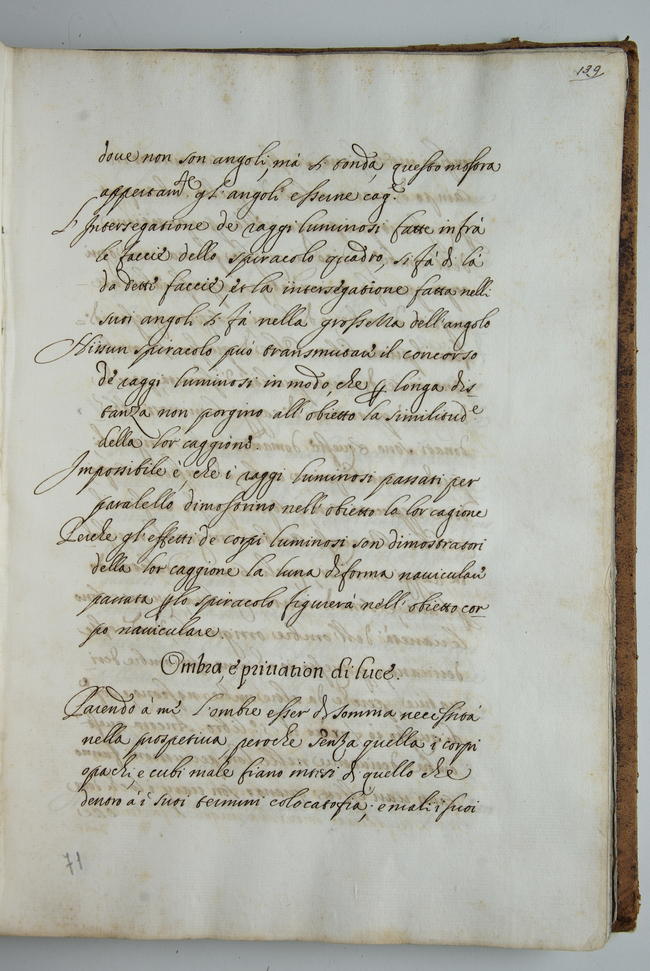 139
doue non son angoli, mà di tonda, questo mostra
apertamte gl' angoli esserne cage
L'Intersegatione de' raggi luminosi fatte infrà
le faccie dello spiracolo quadro, si fà di là
da dette faccie, et la intersegatione fatta nelli
suoi angoli si fà nella grossezza dell'angolo
Nissun spiracolo può transmutare il concorso
de' raggi luminosi in modo, che ꝑ longa dis-
tanza non porgino all' obietto la similitude
della lor caggione.
Impossibile è che i raggi luminosi passati per
paralello dimostrino nell' obietto la lor cagione
Perche gl'effetti de corpi luminosi son dimostratori
della lor caggione la luna di forma nauiculare
passata ꝑ lo spiracolo figurerà nell' obietto cor-
po nauiculare.
Ombra, e priuation di luce.
Parendo à me l'ombre esser di somma necessità
nella prospetiua peroche senza quella i corpi
opachi, e cubi male fiano intesi di quello che
dentro à i suoi termini colocato sia; e mali i suoi
71